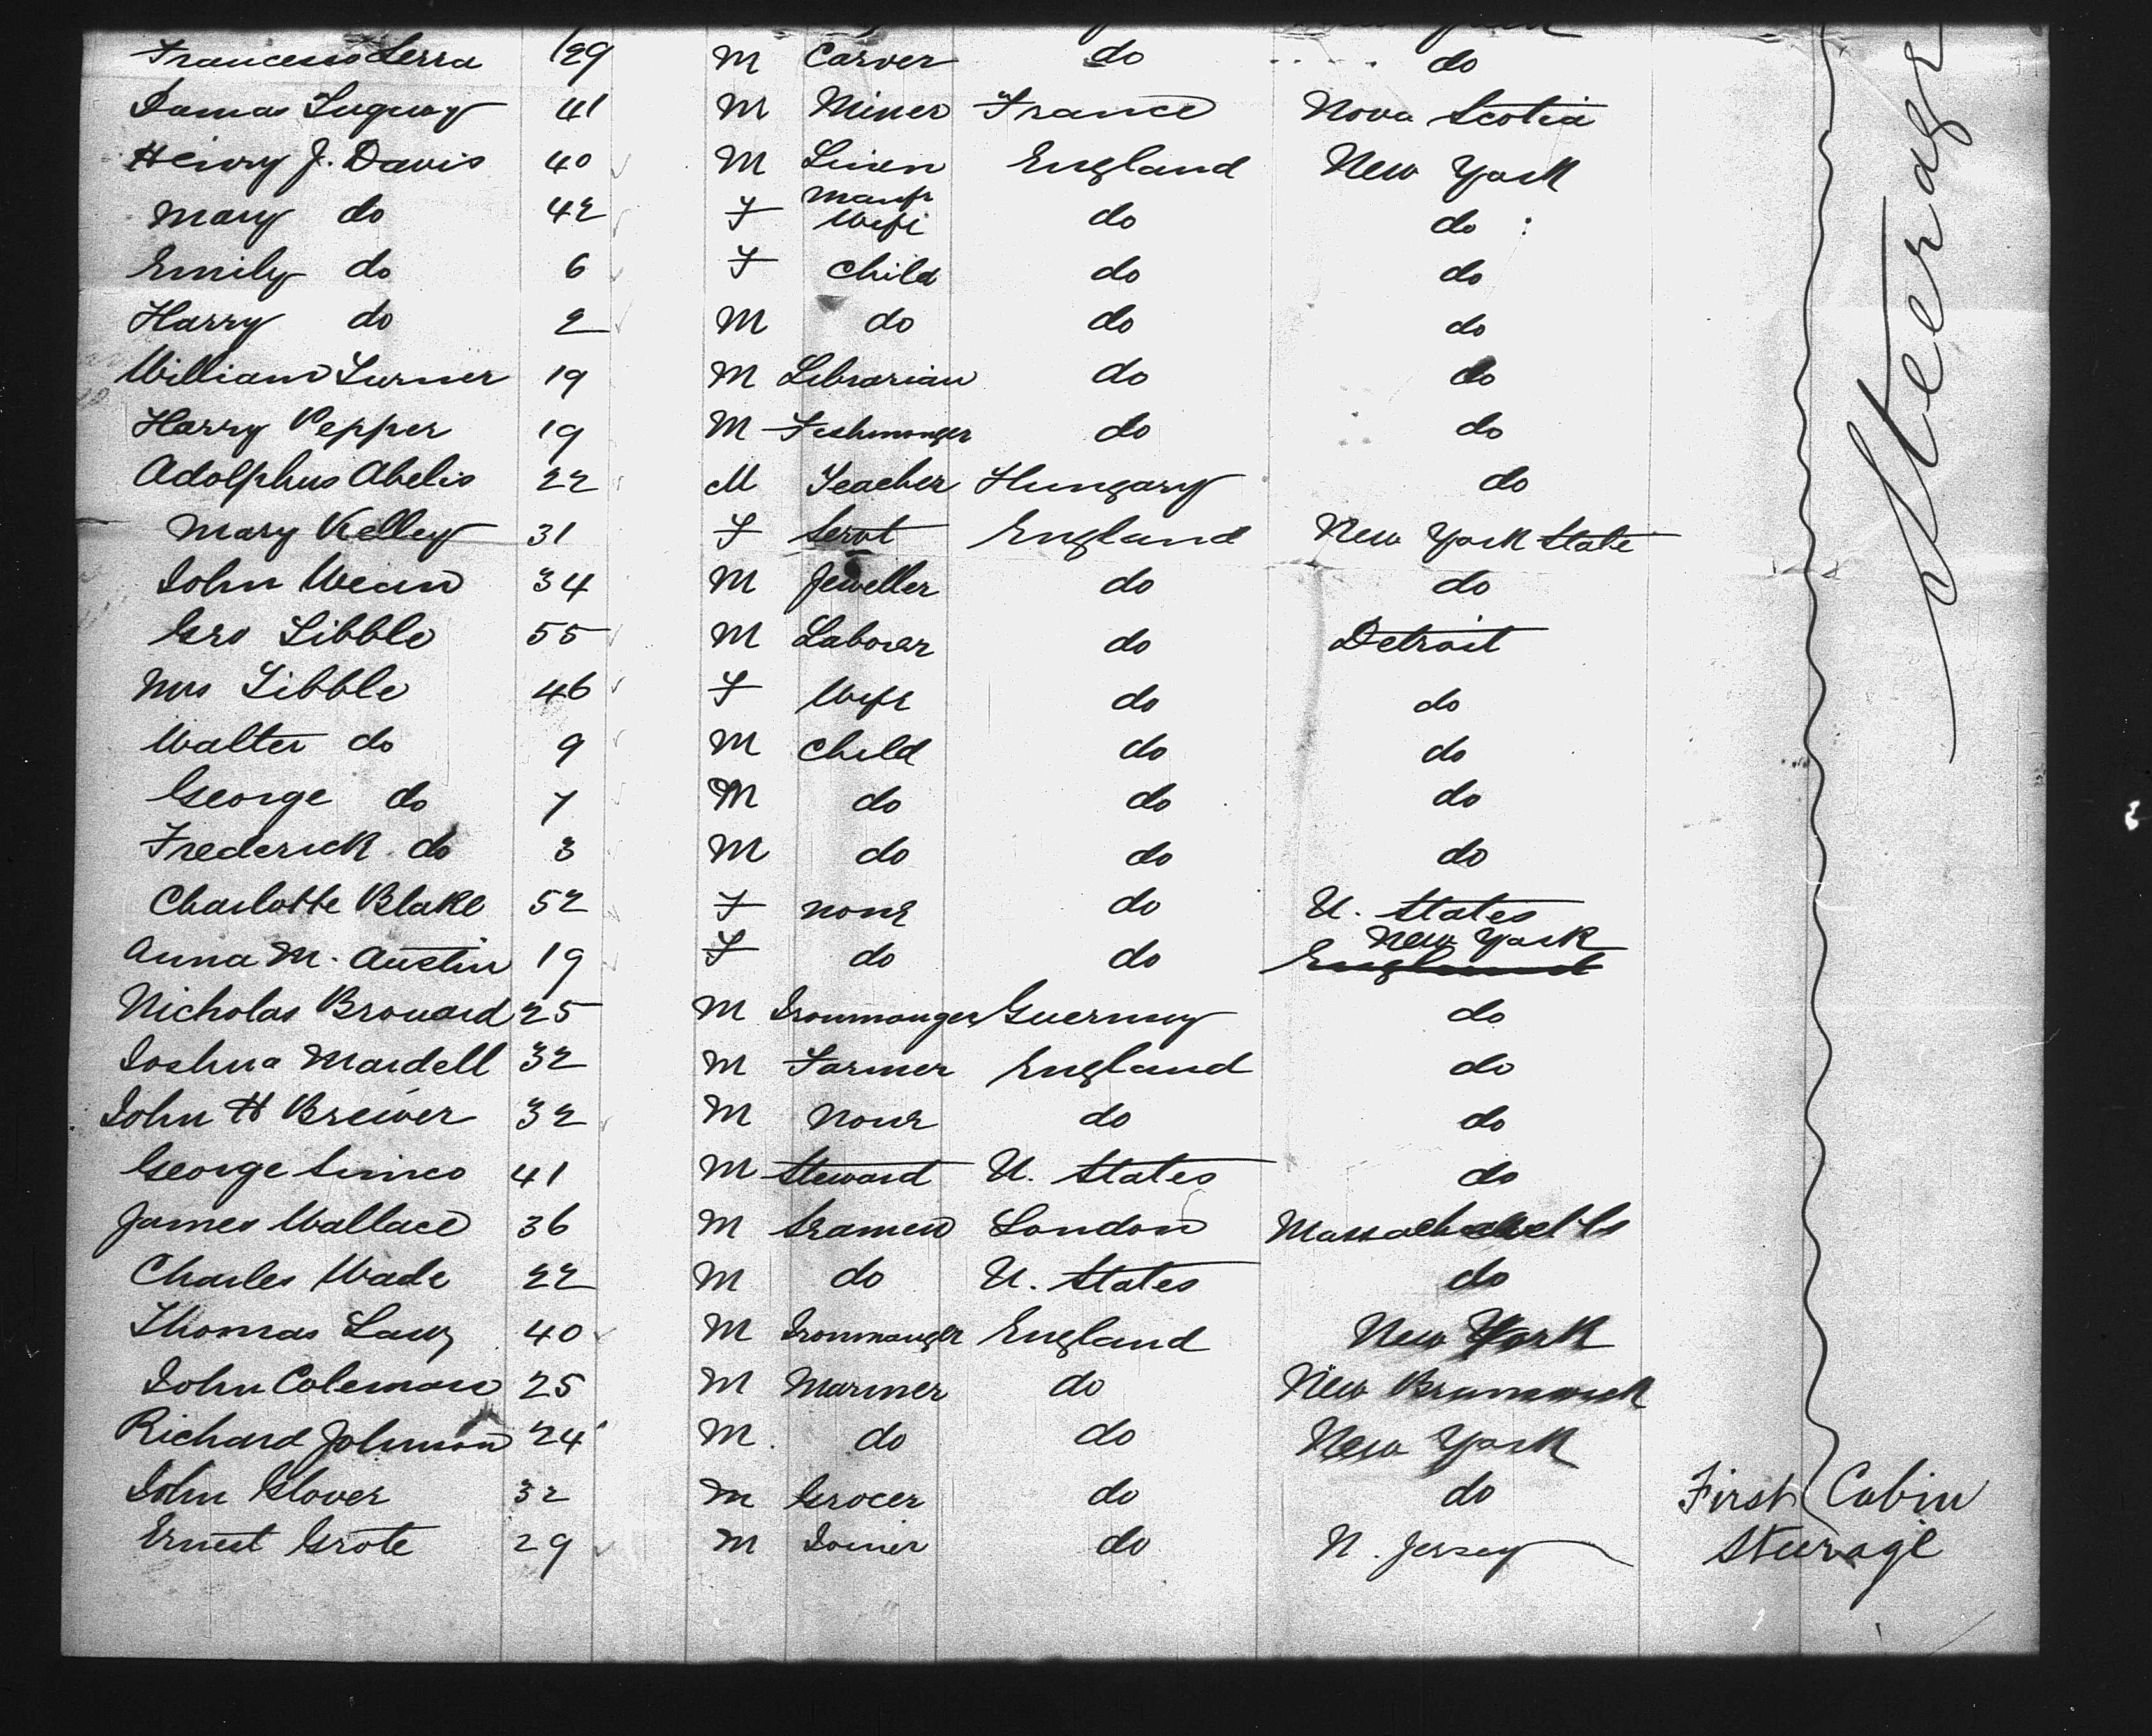 Francesco Serra 29 M Carver do do
41 M Miner France Nova Scotia
Henry J. Davis 40 M Linen Manfr England New York
Mary do 42 F Wife do do
Emily do 6 F Child do do
Harry do 2 M do do do
William Turner 19 M Librarian do do
Harry Pepper 19 M Fishmonger do do
Adolphus Abelis 22 M Teacher Hungary do
Mary Kelley 31 F Servt England New York State
John 34 M Jeweller do do
Geo Tibble 55 M Laborer do Detroit
Mrs Tibble 46 F Wife do do
Walter do 9 M Child do do
George do 7 M do do do
Frederick do 3 M do do do
Charlotte Blake 52 F None do U. States
Anna M. Austin 19 F do do New York England
Nicholas Brouard 25 M Ironmonger Guernsey do
Joshua Mardell 32 M Farmer England do
John H Brewer 32 M None do do
George Simco 41 M Steward U. States do
James Wallace 36 M Seaman London Massachusetts
Charles Wade 22 M do U. States do
Thomas 40 M Ironmonger England New York
John Coleman 25 M Mariner do New Brunswick
Richard Johnson 24 M do do New York
John Glover 32 M Grocer do do First Cabin
Ernest Grote 29 M Joiner do N. Jersey Steerage
Steerage